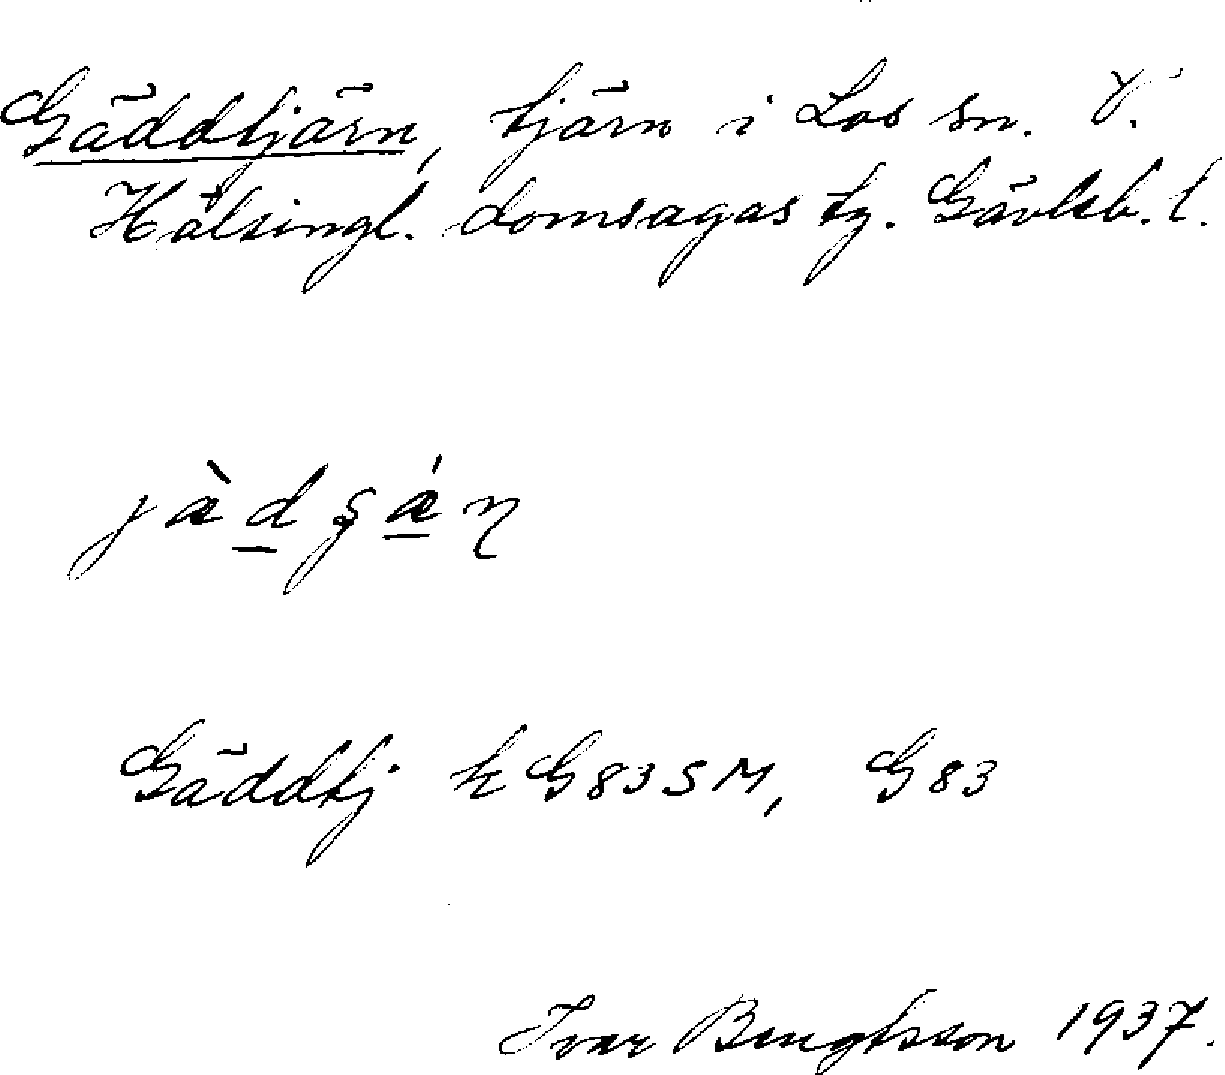 Gäddtjärn, tjärn i Los sn. V.
Hälsingl. domsagas tg. Gävleb. l.
Gäddtj k G83SM, G83
Ivar Bengtsson 1937.